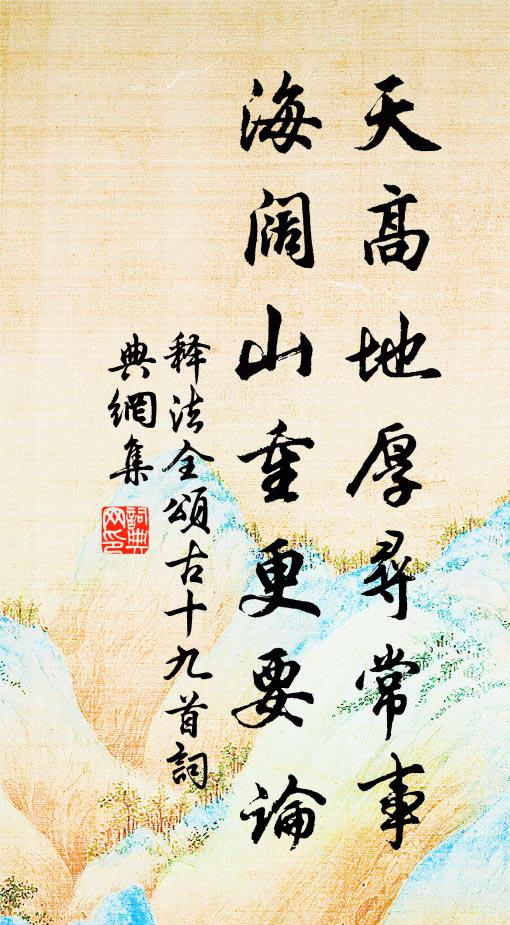 天高地厚尋常事
海阔山重更要論
释法全頌古十九首詞
典網集
詞典
网印